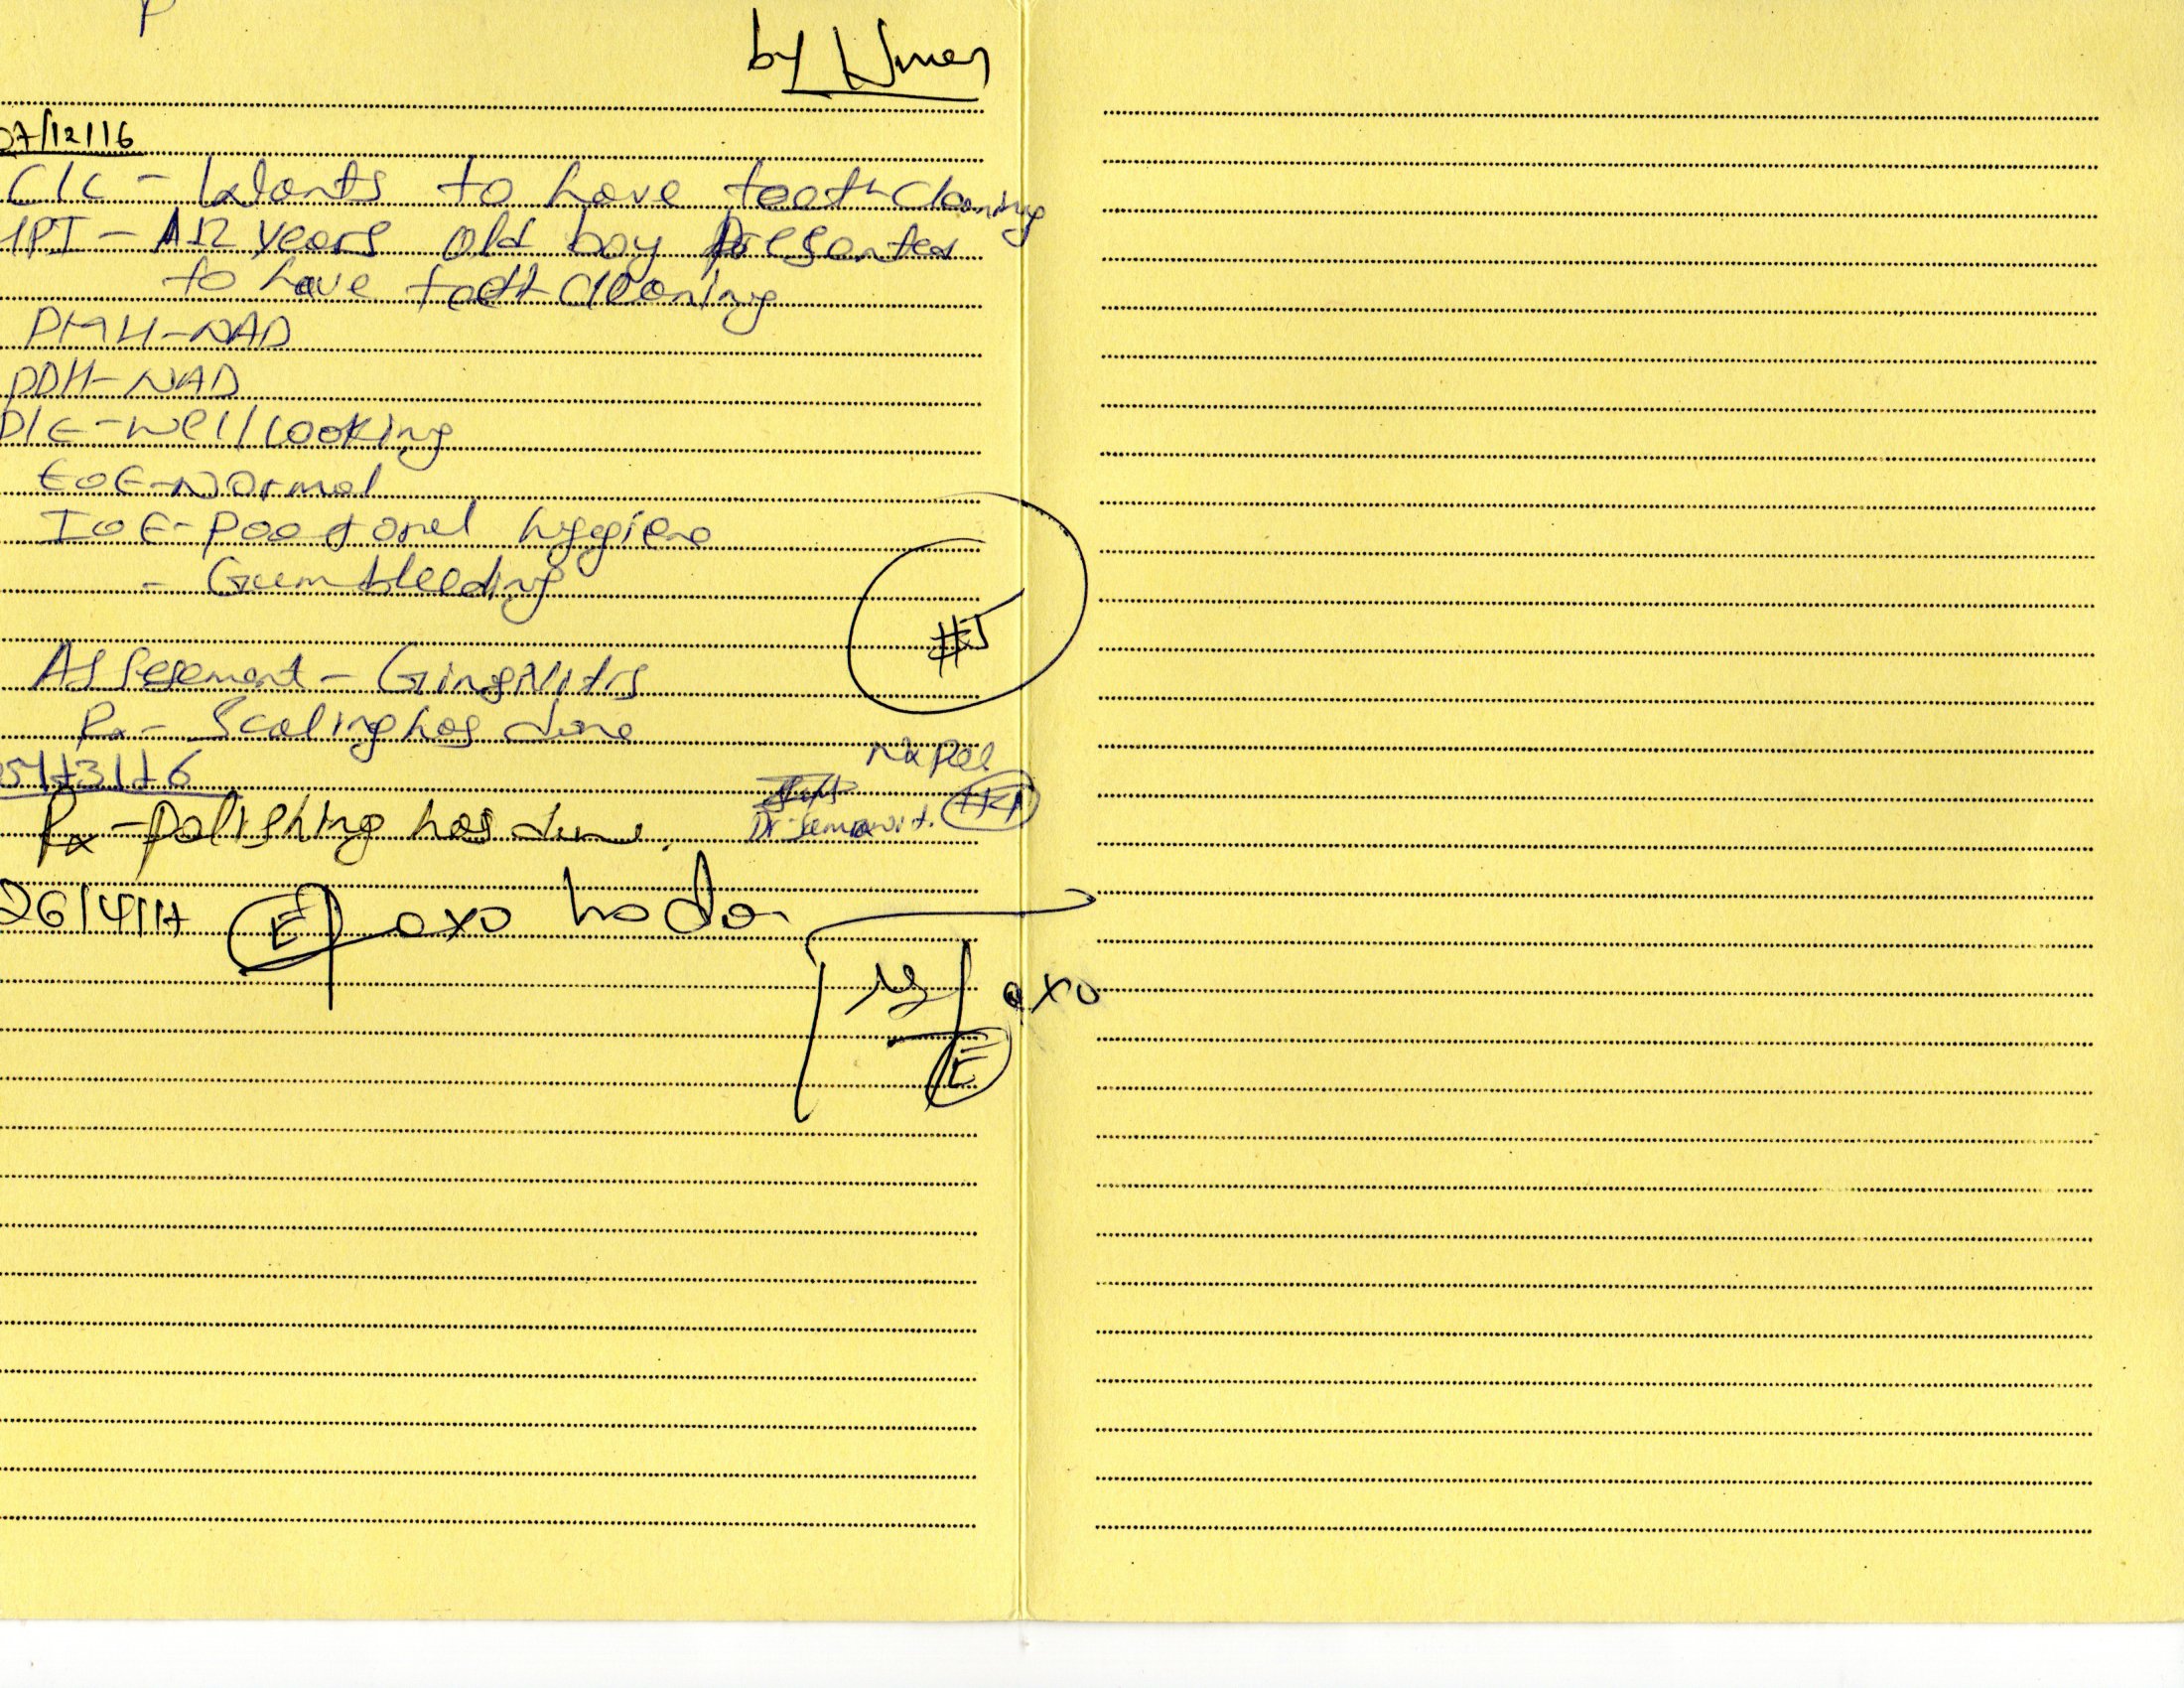 by
07/12/16
C/C - Wants to have teeth cleaning
HPI - A 12 years old boy Presented
to have teeth cleaning
PMH-NAD
PDH-NAD
P/E-well looking
EOE-Normal
IOE-poor oral hygiene
- Gum bleeding
#5
Assesement - Gingivitis
Rx - Scaling has done
Rx-polishing has done.
26/4/17 E exo has done
exo
E